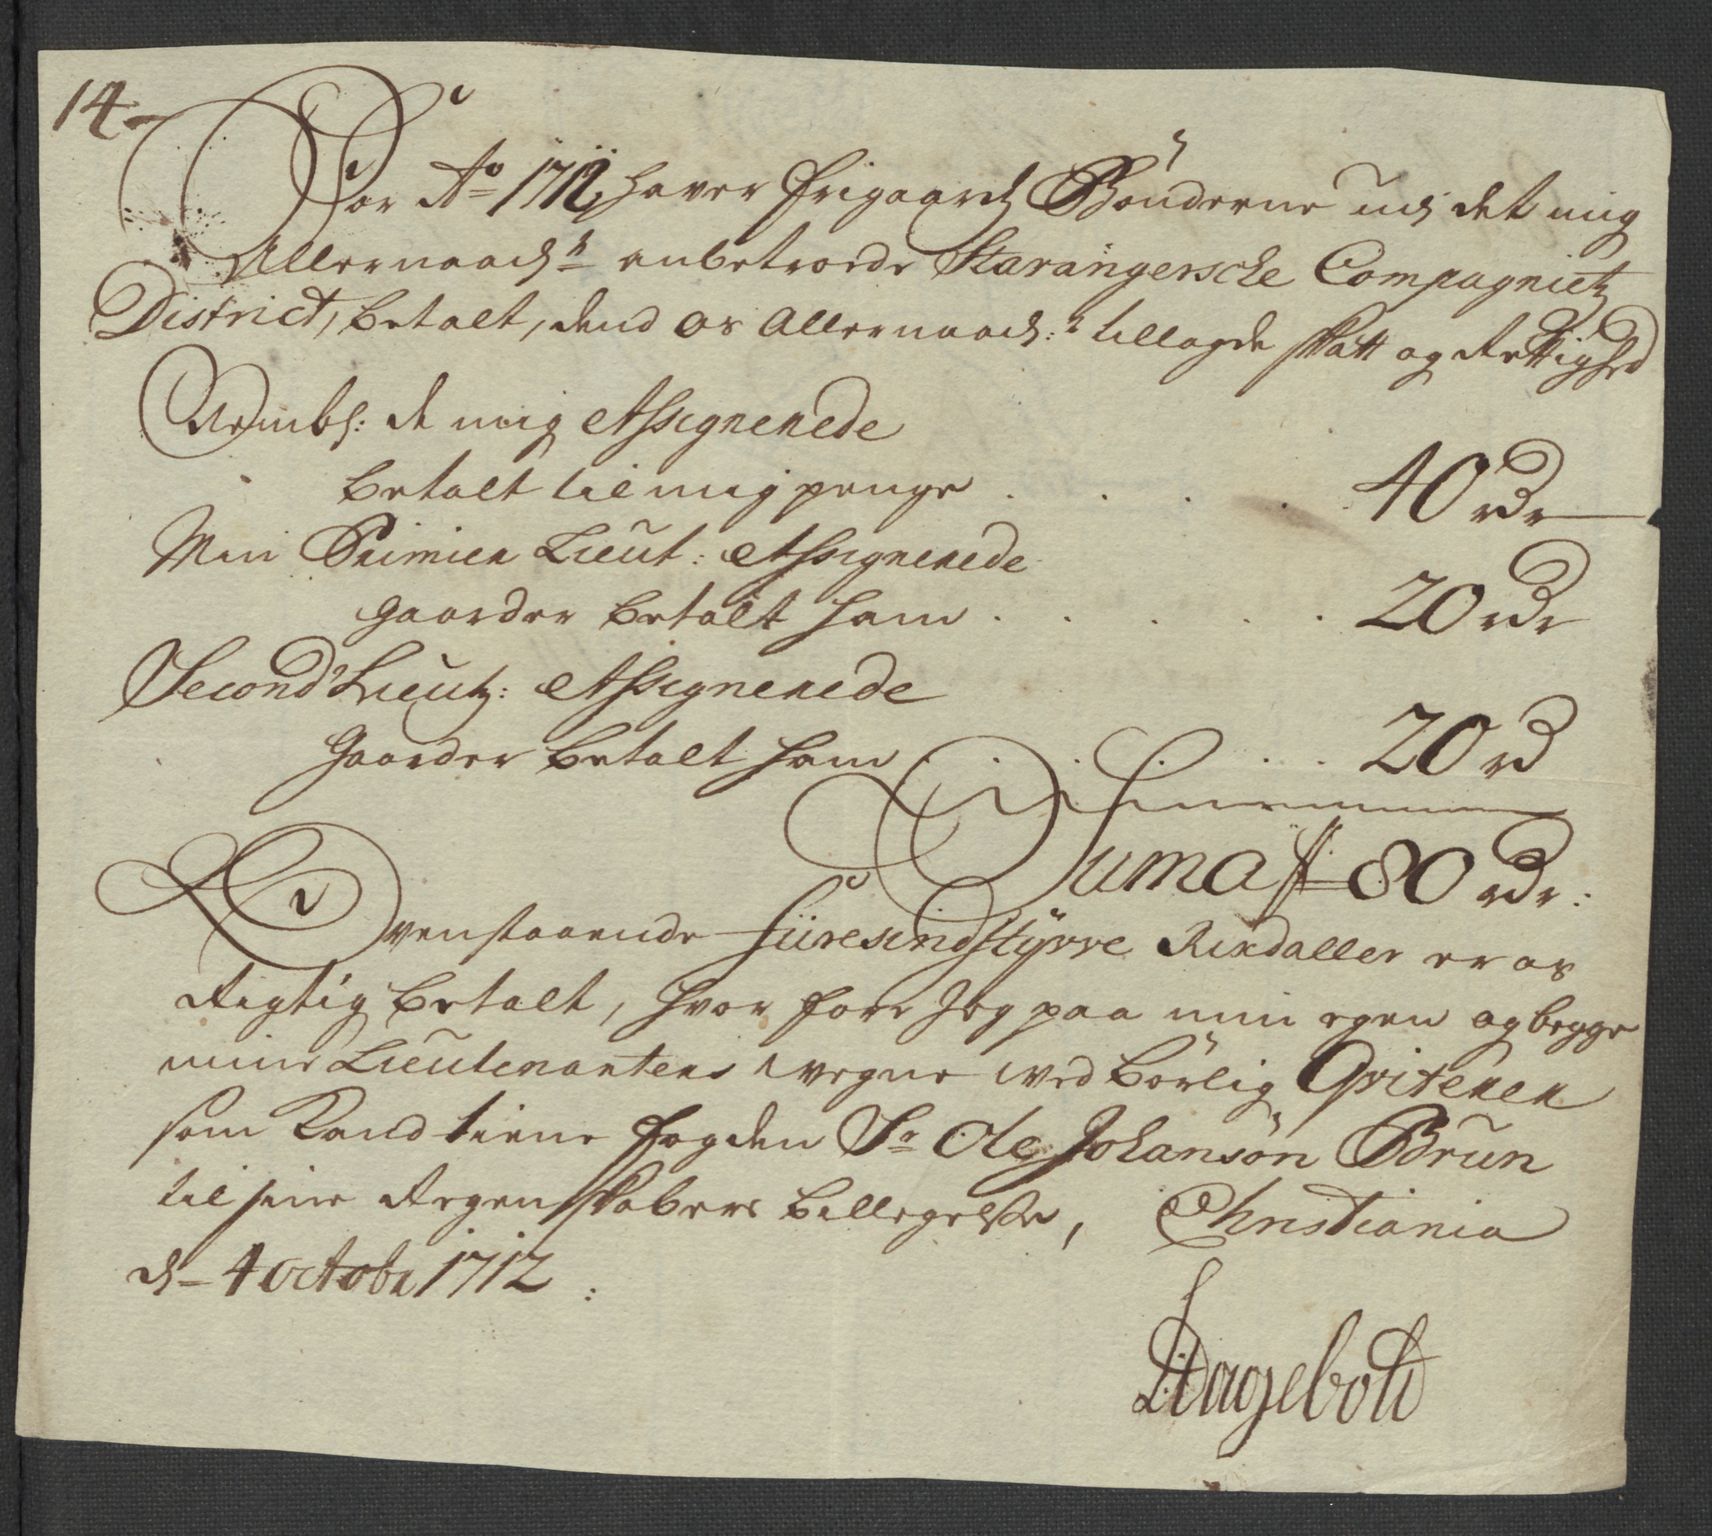 14
For Ao 1712 haver frigaards Bönderne udj det mig
Allernaadst anbetroede Stavangersche Compagnietz
District, betalt, dend os Allernaadst tillagde skatt og Rettighed
Nembl: de mig Assignerede
betalt til mig penge . . . . 40 rdr
Min Primier Lieut: Assignerede
gaarder betalt ham . . . . . 20 rdr
Second Lieut: Assignerede
Gaarder betalt ham . . . . . 20 rd
Suma 80 rdr:
Ovenstaaende fiiresindstÿvve Rixdaller er os
Rigtig betalt, hvor fore Jeg paa min egen og begge
mine Lieutenanters vegne med börlig Qviterer
som kand tiene fogden Sr Ole Johansön Brun
til sine Regenskabers billegelse, Christiania
d 4 octobr 1712 :
Hagebolt